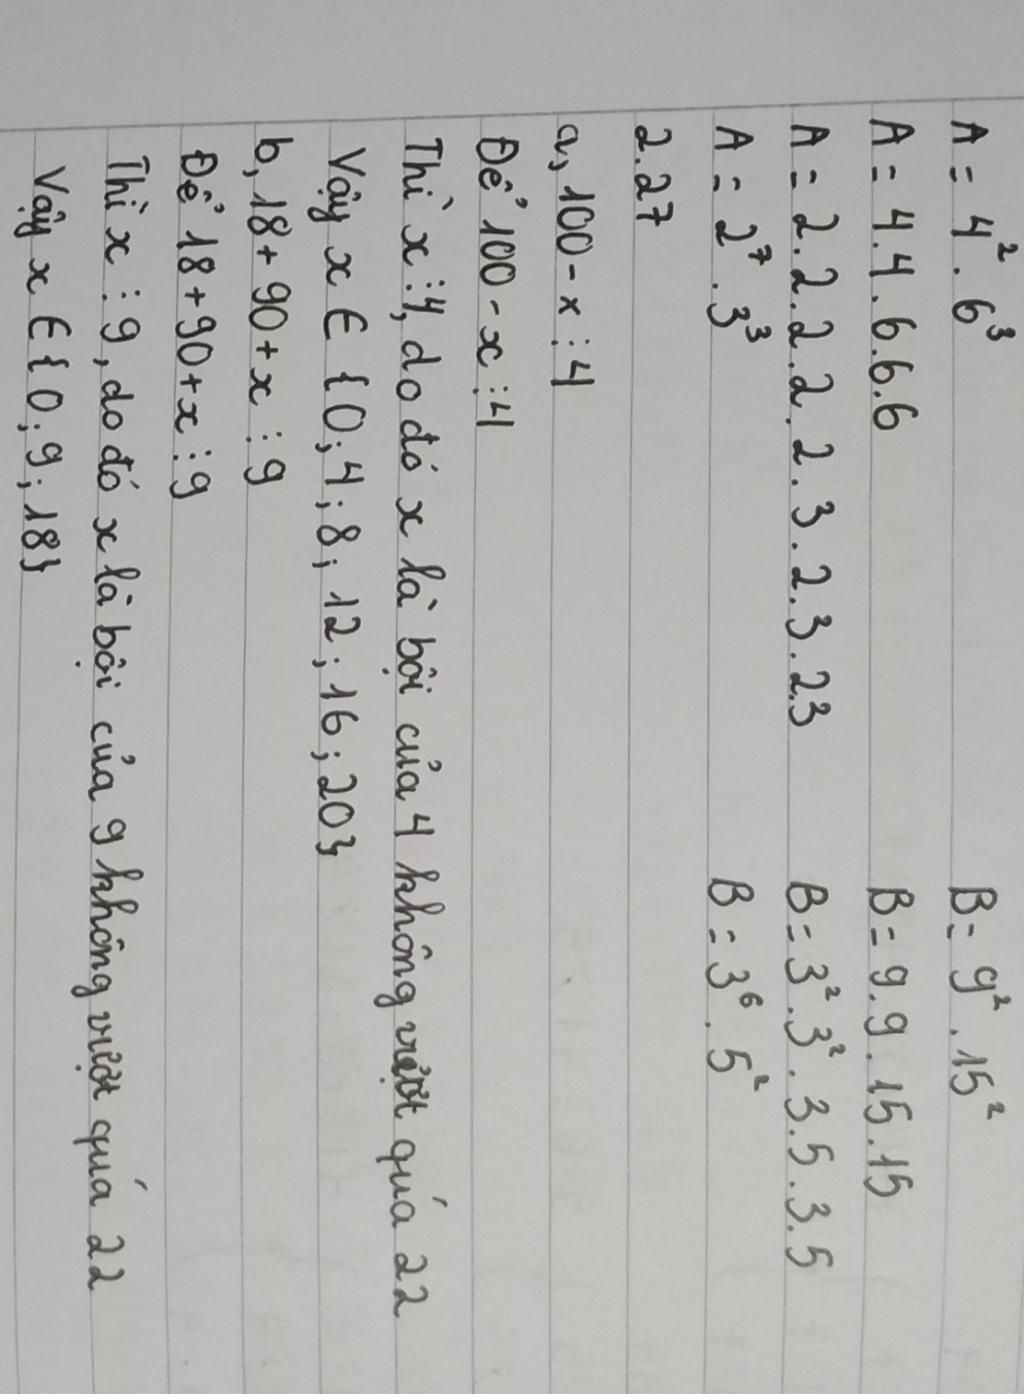 A = 4² . 6³ B = 9² . 15²
A = 4.4.6.6.6 B = 9.9.15.15
A = 2.2.2.2.2.3.2.3.2.3 B = 3².3².3.5.3.5
A = 2⁷.3³ B = 3⁶.5²
2.27
a, 100 - x ⋮ 4
Để 100 - x ⋮ 4
Thì x ⋮ 4, do đó x là bội của 4 không vượt quá 22
Vậy x ∈ {0; 4; 8; 12; 16; 20}
b, 18 + 90 + x ⋮ 9
Để 18 + 90 + x ⋮ 9
Thì x ⋮ 9, do đó x là bội của 9 không vượt quá 22
Vậy x ∈ {0; 9; 18}